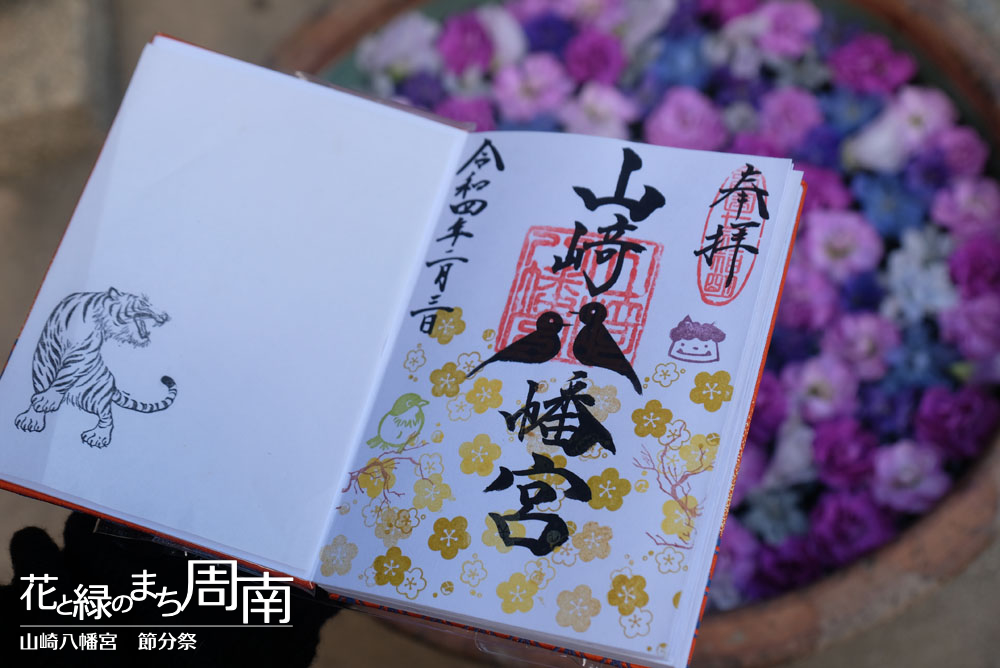 奉拝
山崎
八
幡宮
令和四年二月三日
花と緑のまち周南
山崎八幡宮　節分祭